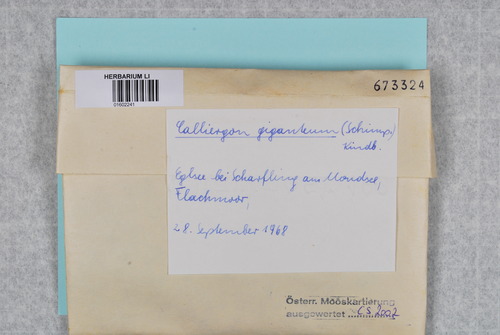 HERBARIUM LI
01602241
673324
Calliergon giganteum (Schimp)
Kindb.
Eglsee bei Scharfling am Mondsee,
Flachmoor,
28. September 1968
Österr. Mooskartierung
ausgewertet ........... CS 2002